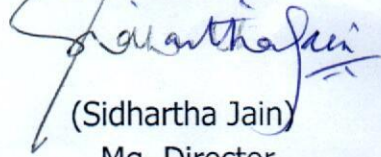 Sidhartha Jain
(Sidhartha Jain)
Mg. Director